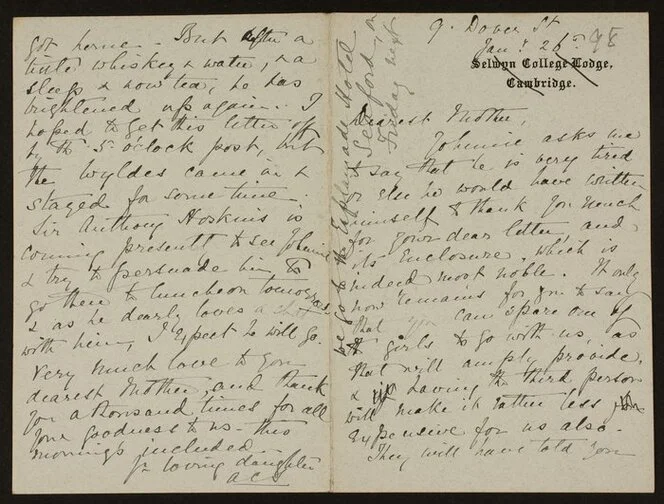 9. Dover St
Jan: 26th 98
Selwyn College Lodge,
Cambridge.
Dearest Mother,
Johnnie asks me
to say that he is very tired
or else he would have written
himself to thank you much
for your dear letter, and
its enclosure, which is
indeed most noble. It only
now remains for you to say
that you can spare one of
the girls to go with us, as
that will amply provide,
& having the third person
will make it rather less
expensive for us also.
They will have told you
we go to the Esplanade Hotel
Seaford, on
Friday next
got home. But after a
little whiskey & water, & a
sleep & now tea, he has
brightened up again. I
hoped to get this letter off
by the 5 o'clock post, but
the Wyldes came in &
stayed for some time.
Sir Anthony Hoskins is
coming presently to see Johnnie
& try to persuade him to
go there to luncheon tomorrow,
& as he dearly loves a chat
with him, I expect he will go.
Very much love to you
dearest Mother, and thank
you a thousand times for all
your goodness to us - this
morning's included.
Yr loving daughter
ACS